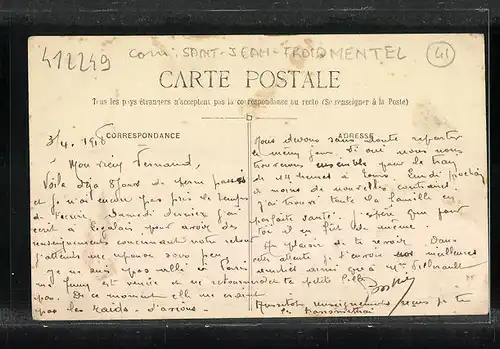 412249
com: SAINT-JEAN-FROIDMENTEL
41
CARTE POSTALE
Tous les pays étrangers n'acceptent pas la correspondance au recto (Se renseigner à la Poste)
CORRESPONDANCE
ADRESSE
3/4. 1918
Mon vieux Fernand,
Voilà déjà 8 jours de perm passés
et je n'ai encore pas pris le temps
de t'écrire. Samedi dernier j'ai
écrit à pour avoir des
renseignements concernant notre retour
j'attends une réponse sous peu.
Je ne suis pas allé à Paris
ma est venue et ne
pas. De ce moment elle ne craint
pas les raids d'avions.
Nous devons sans doute repartir
le même jour. Si oui nous nous
trouverons ensemble pour le train
de 11 heures à Tours Lundi prochain
à moins de nouvelles contraires.
J'ai trouvé toute la famille en
parfaite santé. J'espère que pour
toi il en fut de même.
Au plaisir de te revoir. Dans
cette attente je t'envoie mes meilleures
amitiés ainsi qu'à Mme
et petite fille
Aussitôt renseignements reçus je te
les transmettrai